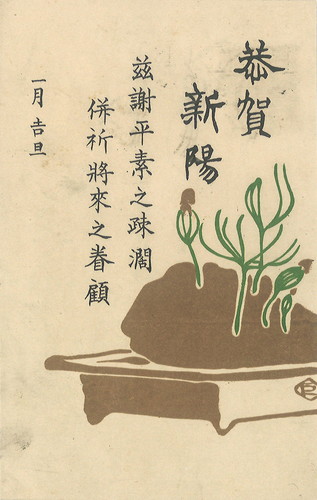 恭賀
新陽
茲謝平素之疎濶
併祈將來之眷顧
一月吉旦